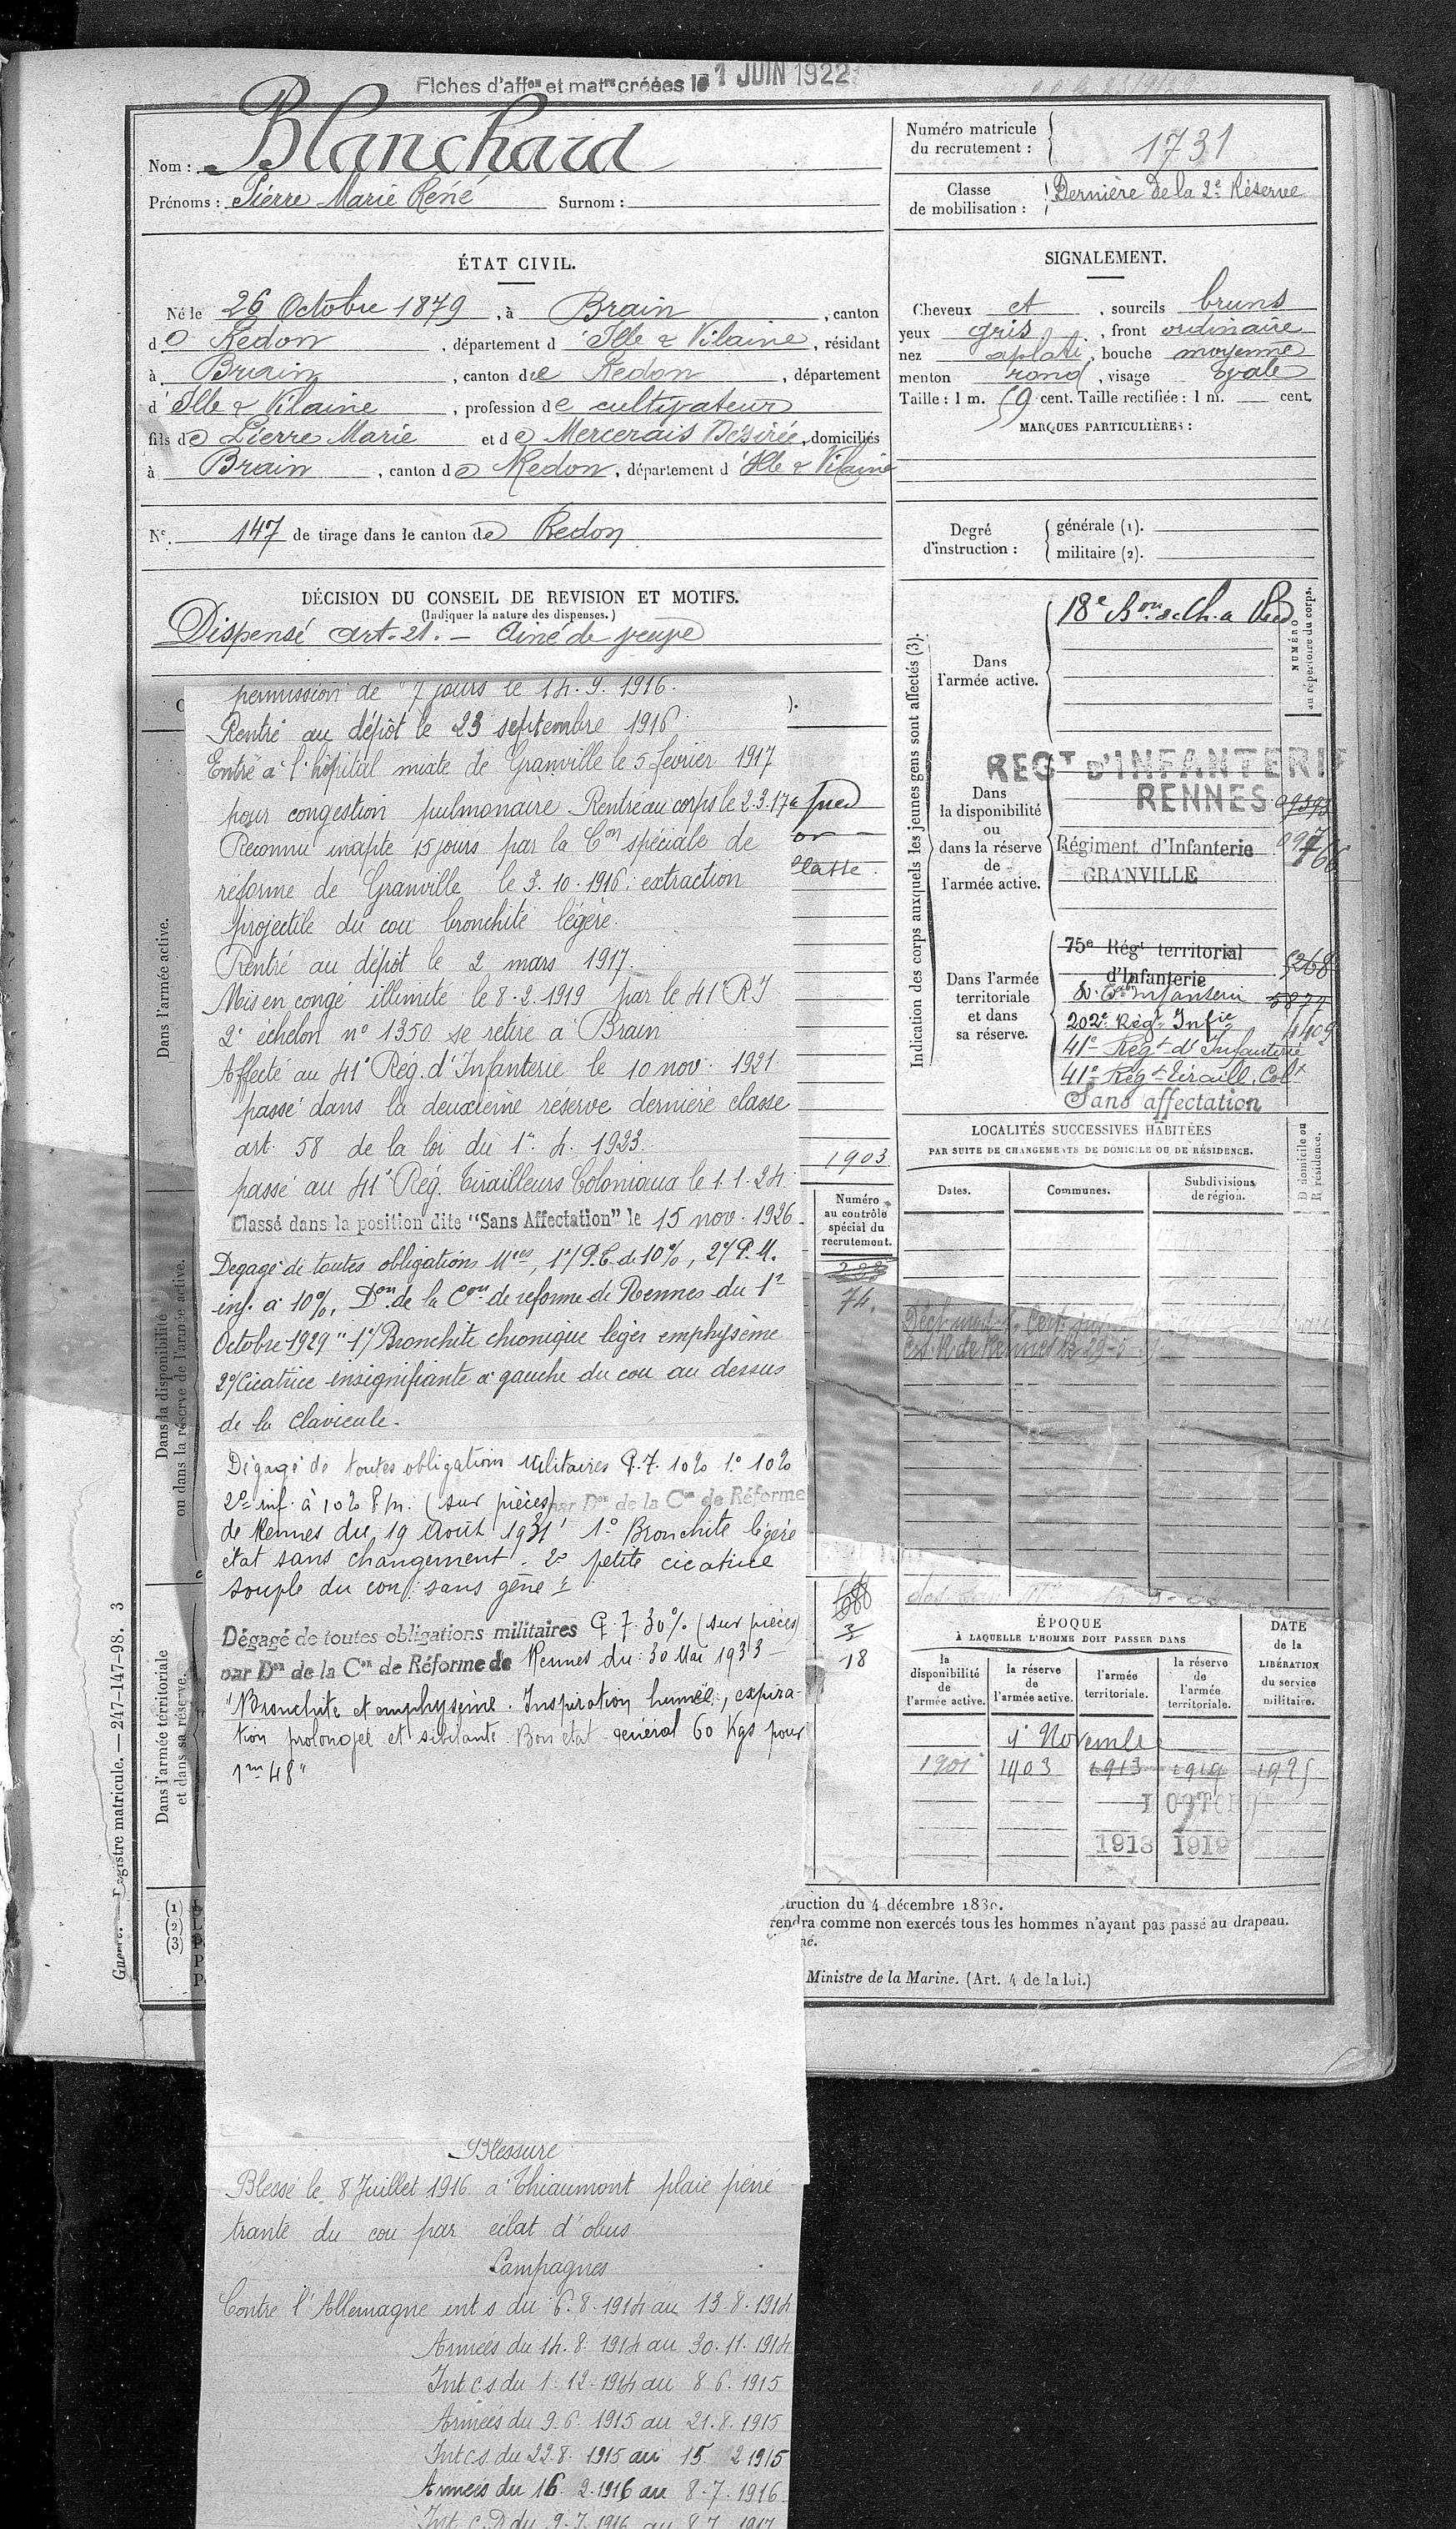 Fiches d'affon et matre créées le 1 JUIN 1922
Nom : Blanchard
Prénoms : Pierre Marie René Surnom :
Numéro matricule du recrutement : 1731
Classe de mobilisation : Dernière de la 2e Réserve
ÉTAT CIVIL.
Né le 26 Octobre 1879, à Brain, canton
de Redon, département d'Ille & Vilaine, résidant
à Brain, canton de Redon, département
d'Ille & Vilaine, profession de cultivateur
fils de Pierre Marie et de Mercerais Désirée, domiciliés
à Brain, canton de Redon, département d'Ille & Vilaine
N° 147 de tirage dans le canton de Redon
SIGNALEMENT.
Cheveux et, sourcils bruns
yeux gris, front ordinaire
nez aplati, bouche moyenne
menton rond, visage ovale
Taille : 1 m. 59 cent. Taille rectifiée : 1 m. cent.
MARQUES PARTICULIÈRES :
Degré d'instruction : générale (1).
militaire (2).
DÉCISION DU CONSEIL DE REVISION ET MOTIFS.
(Indiquer la nature des dispenses.)
Dispensé art. 21. — Ainé de veuve
permission de 7 jours le 14.9.1916.
Rentré au dépôt le 23 septembre 1916
Entré à l'hôpital mixte de Granville le 5 février 1917
pour congestion pulmonaire Rentré au corps le 2.3.17
Reconnu inapte 15 jours par la Con spéciale de
réforme de Granville le 3.10.1916: extraction
projectile du cou bronchite légère.
Rentré au dépôt le 2 mars 1917.
Mis en congé illimité le 8.2.1919 par le 41e RI
2e échelon n° 1350 se retire à Brain
Affecté au 41e Rég. d'Infanterie le 10 nov. 1921
passé dans la deuxième réserve dernière classe
art. 58 de la loi du 1er.4.1923.
passé au 41e Rég. Tirailleurs Coloniaux le 1.1.24
Classé dans la position dite "Sans Affectation" le 15 nov. 1926
Dégagé de toutes obligations Mres, 1°/ P.T. de 10%, 2°/ P.M.
inf. à 10%, Don de la Con de réforme de Rennes du 1er
Octobre 1929 "1°/ Bronchite chronique léger emphysème
2°/ Cicatrice insignifiante à gauche du cou au dessus
de la clavicule.
Dégagé de toutes obligations Militaires P.T. 10% 1° 10%
2° inf. à 10% P.M. (sur pièces) par Don de la Con de Réforme
de Rennes du 19 Août 1931 1° Bronchite légère
état sans changement. 2° petite cicatrice
souple du cou sans gêne
Dégagé de toutes obligations militaires P.T. 30% (sur pièces)
par Don de la Con de Réforme de Rennes du 30 Mai 1933
"Bronchite et emphysème. Inspiration humée, expira-
tion prolongée et sibilante. Bon état général 60 Kgs pour
1m48"
Blessure
Blessé le 8 Juillet 1916 à Thiaumont plaie péné
trante du cou par éclat d'obus
Campagnes
Contre l'Allemagne int s du 6.8.1914 au 13.8.1914
Armées du 14.8.1914 au 30.11.1914
Int c.s du 1.12.1914 au 8.6.1915
Armées du 9.6.1915 au 21.8.1915
Int c.s. du 22.8.1915 au 15 2 1915
Armées du 16.2.1916 au 8.7.1916
Int. c. D du 9.7.1916 au 8 7 1917
Indication des corps auxquels les jeunes gens sont affectés (3).
NUMÉRO au répertoire du corps.
Dans l'armée active.
18e Bon de Ch. à Pied
Dans la disponibilité ou dans la réserve de l'armée active.
REGT D'INFANTERIE
RENNES
Régiment d'Infanterie
GRANVILLE
Dans l'armée territoriale et dans sa réserve.
75e Régt territorial
d'Infanterie 5268
5877
202e Régt Infie 4409
41e Régt d'Infanterie
41e Régt Tiraill. Colx
Sans affectation
LOCALITÉS SUCCESSIVES HABITÉES
PAR SUITE DE CHANGEMENTS DE DOMICILE OU DE RÉSIDENCE.
Dates. Communes. Subdivisions de région. D domicile ou R résidence.
1903
Numéro au contrôle spécial du recrutement.
74.
18
ÉPOQUE
À LAQUELLE L'HOMME DOIT PASSER DANS
la disponibilité de l'armée active. la réserve de l'armée active. l'armée territoriale. la réserve de l'armée territoriale.
DATE de la LIBÉRATION du service militaire.
1er Novembre
1901 1903 1913 1919 1925
1 OCTOBRE
1913 1919
Dans l'armée active.
Dans la disponibilité ou dans la réserve de l'armée active.
Dans l'armée territoriale et dans sa réserve.
(1)
(2)
(3)
truction du 4 décembre 1830.
rendra comme non exercés tous les hommes n'ayant pas passé au drapeau.
né.
Ministre de la Marine. (Art. 4 de la loi.)
Guerre. — Registre matricule. — 247-147-98. 3